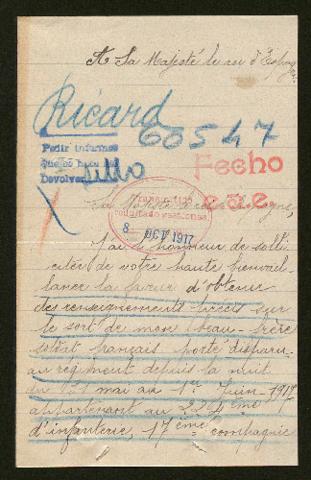 A Sa Majesté le roi d'Espagne
Ricard
60547
Pedir informes
Devolver
Fecho
c.a.e.
resultado gestiones
8 OCT 1917
J'ai l'honneur de solli-
citer de votre haute bienveil-
lance la faveur d'obtenir
des renseignements précis sur
le sort de mon beau-frère
soldat français porté disparu
au régiment depuis la nuit
du 31 mai au 1er Juin 1917
appartenant au 224ème
d'infanterie, 17ème compagnie